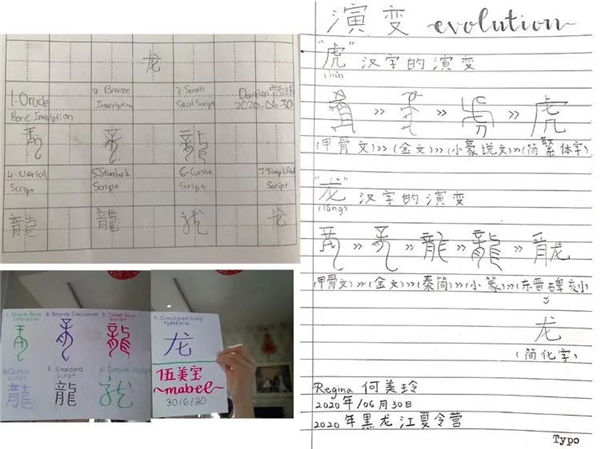 龙
1. Oracle Bone Inscription
2. Bronze Inscription
3. Small Seal Script
2020.06.30
4. Clerical Script
5. Standard Script
6. Cursive Script
7. Simplified Script
龍
龍
龙
1. Oracle Bone Inscription
2. Bronze Inscription
3. Small Seal Script
5. Standard Script
6. Cursive Script
龍
龍
龙
伍美宝
~mabel~
30/6/20
演变 evolution
"虎" 汉字的演变
(hǔ)
» » » 虎
(甲骨文)»(金文)»(小篆说文)»(简繁体字)
"龙" 汉字的演变
(lóng)
» » » »
(甲骨文)»(金文)»(秦简)»(小篆)»(东晋碑刻)
龙
(简化字)
Regina 何美玲
2020年/06月30日
2020年黑龙江夏令营
Typo